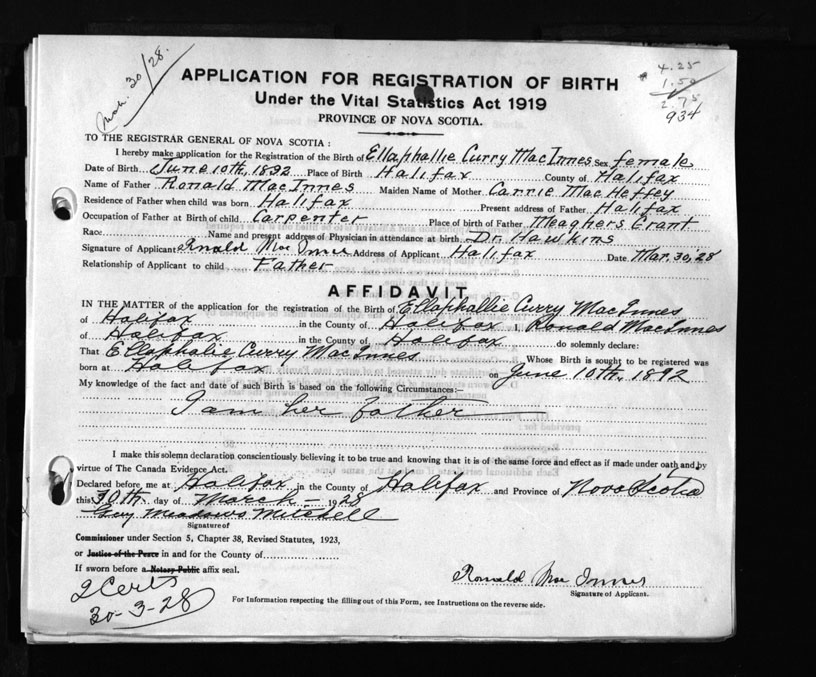 Mch. 30/28.
4.25
1.50
2.75
934
APPLICATION FOR REGISTRATION OF BIRTH
Under the Vital Statistics Act 1919
PROVINCE OF NOVA SCOTIA.
TO THE REGISTRAR GENERAL OF NOVA SCOTIA :
I hereby make application for the Registration of the Birth of Ellaphallie Curry MacInnes Sex female
Date of Birth June 10th, 1892 Place of Birth Halifax County of Halifax
Name of Father Ronald MacInnes Maiden Name of Mother Carrie MacHeffey
Residence of Father when child was born Halifax Present address of Father Halifax
Occupation of Father at Birth of child Carpenter Place of birth of Father Meaghers Grant
Race Name and present address of Physician in attendance at birth Dr. Hawkins
Signature of Applicant Ronald Mac Innes Address of Applicant Halifax Date Mar. 30,'28
Relationship of Applicant to child Father
AFFIDAVIT
IN THE MATTER of the application for the registration of the Birth of Ellaphallie Curry MacInnes
of Halifax in the County of Halifax I, Ronald MacInnes
of Halifax in the County of Halifax do solemnly declare:
That Ellaphalie Curry MacInnes Whose Birth is sought to be registered was
born at Halifax on June 10th, 1892
My knowledge of the fact and date of such Birth is based on the following Circumstances:—
I am her father
I make this solemn declaration conscientiously believing it to be true and knowing that it is of the same force and effect as if made under oath and by
virtue of The Canada Evidence Act.
Declared before me at Halifax in the County of Halifax and Province of Nova Scotia
this 30th day of March 1928
Guy Meadows Mitchell
Signature of
Commissioner under Section 5, Chapter 38, Revised Statutes, 1923,
or Justice of the Peace in and for the County of
If sworn before a Notary Public affix seal.
2 Certs
30-3-28
Ronald Mac Innes
Signature of Applicant.
For Information respecting the filling out of this Form, see Instructions on the reverse side.